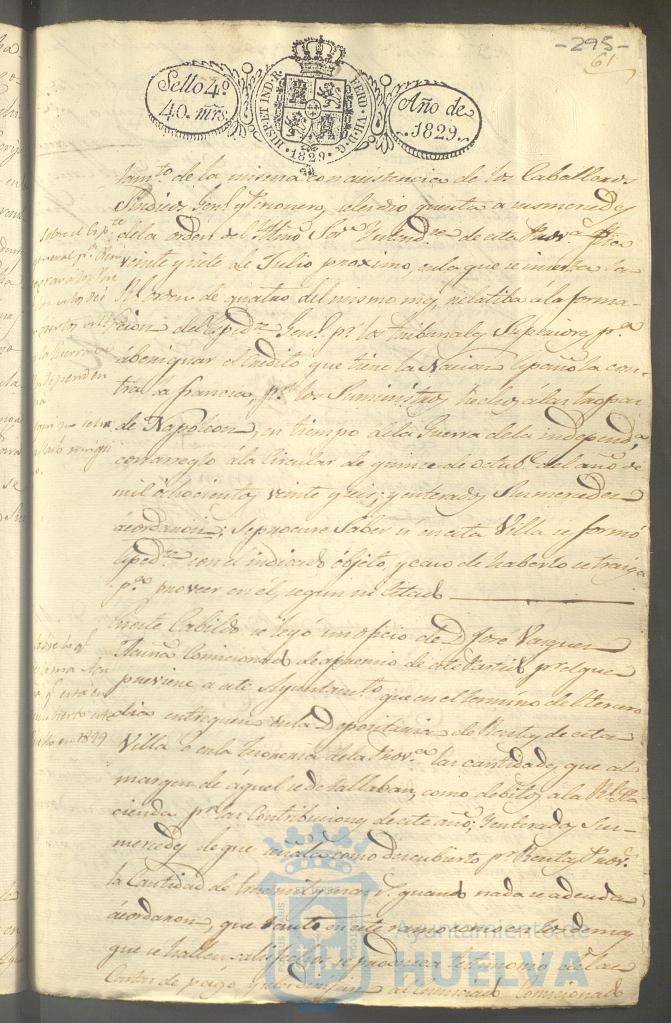 -295-
61
Sello 4º
40. mrs.
HISP. ET IND. R.
FERD. VII. D. G.
1829
Año de
1829
tamto. de la misma con asistencia de los Caballeros
Sindico Genl. y Personero, se dio quenta a sus mercedes
de la orden del Yltmo Sor. Yntendte. de esta Prova. fha
veinte y siete de Julio proximo, en la que se inserta la
Rl. orden de quatro del mismo mes, relatiba á la forma-
cion del Espedte. Genl. pr. los tribunales Superiores pa.
aberiguar el credito que tiene la Nacion Española con-
tra la francia, pr. los Suministros hechos á las tropas
de Napoleon, en tiempo de la Guerra de la independa.
con arreglo á la Circular de quince de octube. del año de
mil ochocientos veinte y seis; y enterados Sus mercedes
acordaron: Se procure Saber si en esta Villa se formó
Espedte. con el indicado óbjeto, y caso de haberlo se traiga
pa. proveer en él, segun su estado
Sobre el Espte.
general pa.
la Guerra de
Yndependen
En este Cabildo se leyó un oficio de D. Jose Vazquez
Comicionado de apremio de este Partido pr. el que
previene a este Ayuntamto. que en el termino del tercero
dia entreguen en la Depositaria de Rentas de esta
Villa o en la Tesoreria de la Prova. las cantidades que al
margen de áquel se detallaban, como debitos a la Rl. Ha-
cienda pr. las Contribuciones de este año; Y enterados Sus
mercedes de que señala como descubierto pr. Rentas Provs.
la Cantidad de tres mil rs. quando nada se adeuda
ácordaron, que tanto en este ramo como en los demas
que se hallen satisfechos, se produzca testimonio de las
Cartas de pago, al Comicionado
en 1829
Ayuntamiento de
HUELVA